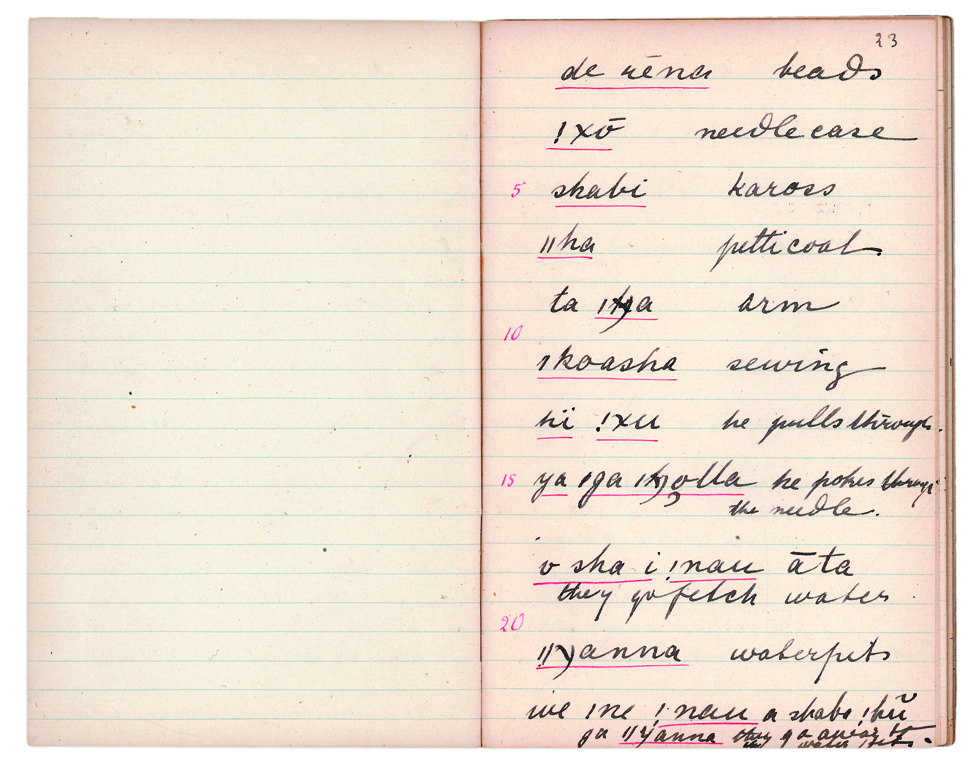 23
de ūēna beads
!xō needlecase
5 shabi kaross
ǁha petticoat
ta arm
10
ǀkoasha sewing
hï !xu he pulls through.
15 ya ǀga he pokes through
the needle.
o sha i !nau āta
they go fetch water
20
ǁχanna waterpits
we ǀne !nau a shabe !kŭ
ga ǁχanna they go